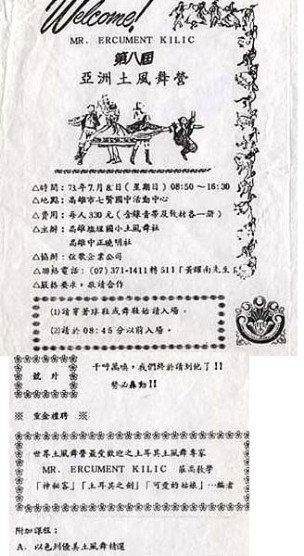 Welcome!
MR. ERCUMENT KILIC
第八屆
亞洲土風舞營
△時間：73年7月8日（星期日）08:50～16:30
△地點：高雄市七賢國中活動中心
△費用：每人330元（含錄音帶及教材各一册）
△主辦：高雄鹽埕國小土風舞社
高雄中正曉明社
△協辦：弦歌企業公司
△聯絡電話：(07)371-1411轉511「黃耀南先生」
△嚴格要求，敬請合作
(1)請穿著球鞋或舞鞋始請入場。
(2)請於08:45分以前入場。
號片
千呼萬喚，我們終於請到他了!!
勢必轟動!!
※ 重金禮聘 ※
世界土風舞營最受歡迎之土耳其土風舞專家
MR. ERCUMENT KILIC 蒞高教學
「神秘客」「土耳其之劍」「可愛的姑娘」…編者
附加課程：
A. 以色列優美土風舞精選